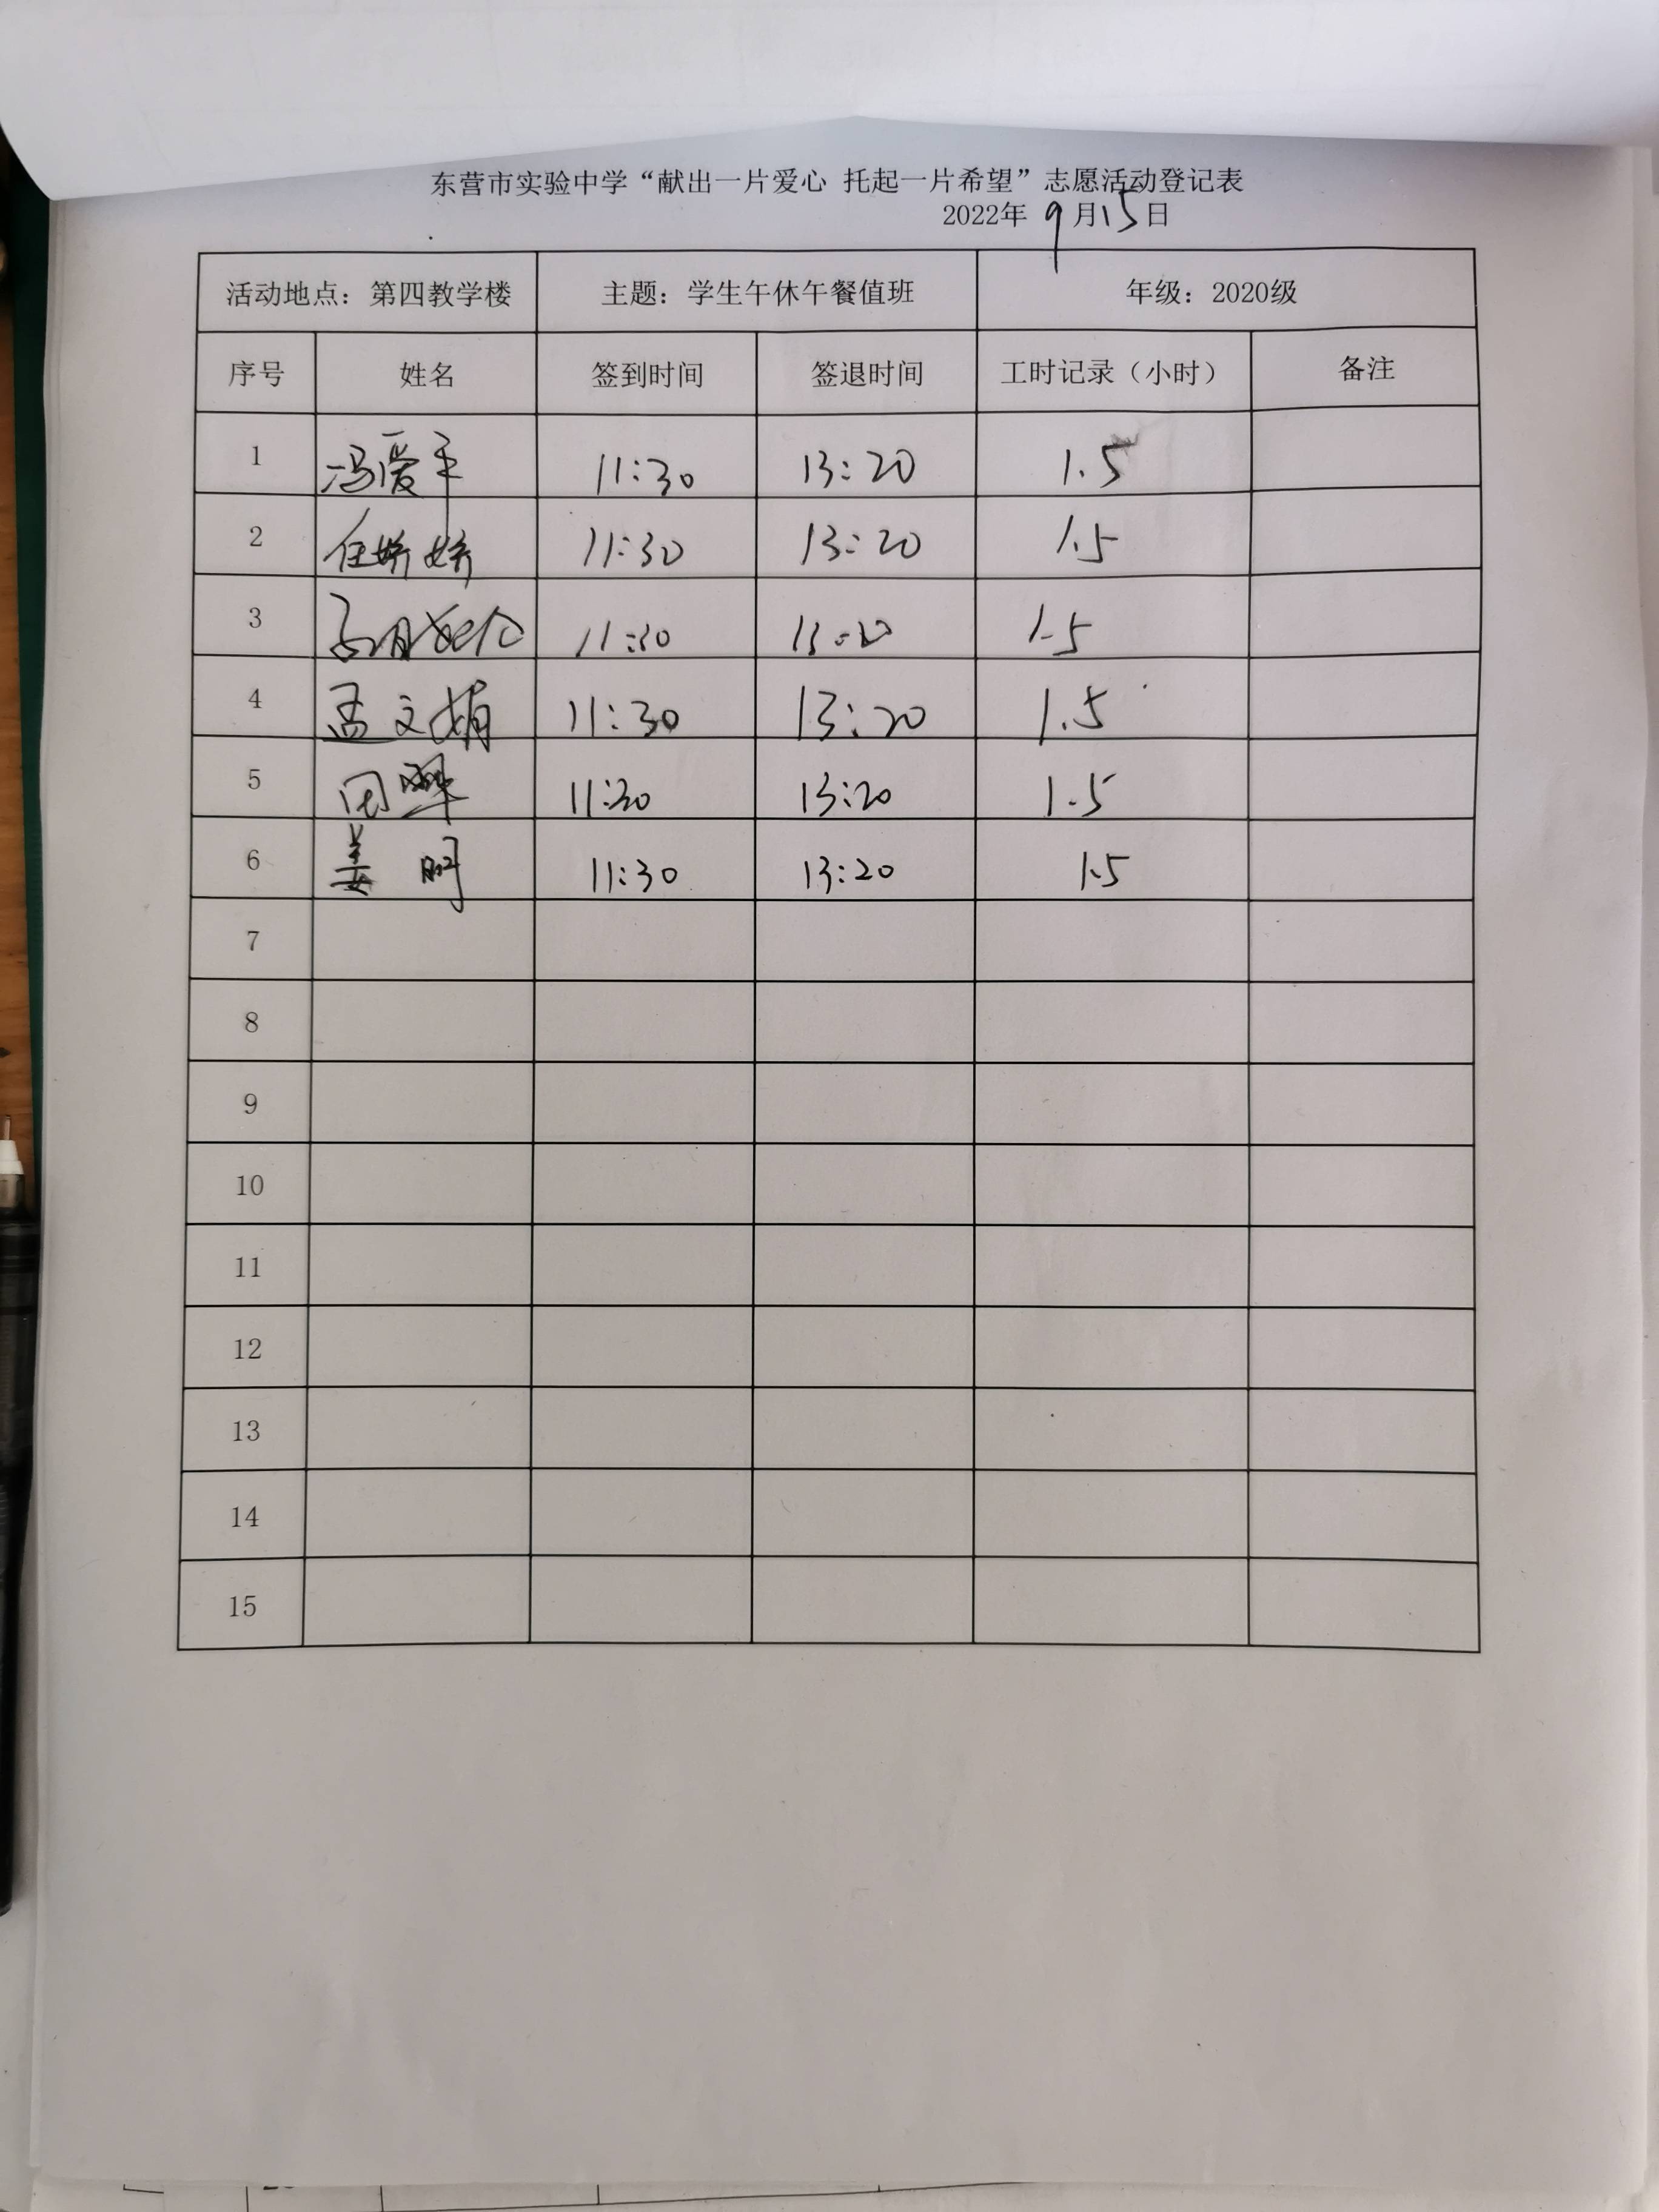 东营市实验中学“献出一片爱心 托起一片希望”志愿活动登记表
2022年 9月15日
活动地点：第四教学楼 主题：学生午休午餐值班 年级：2020级
序号 姓名 签到时间 签退时间 工时记录（小时） 备注
1 冯爱平 11:30 13:20 1.5
2 任娇娇 11:30 13:20 1.5
3 11:30 13:20 1.5
4 孟文娟 11:30 13:20 1.5
5 11:30 13:20 1.5
6 姜明 11:30 13:20 1.5
7
8
9
10
11
12
13
14
15